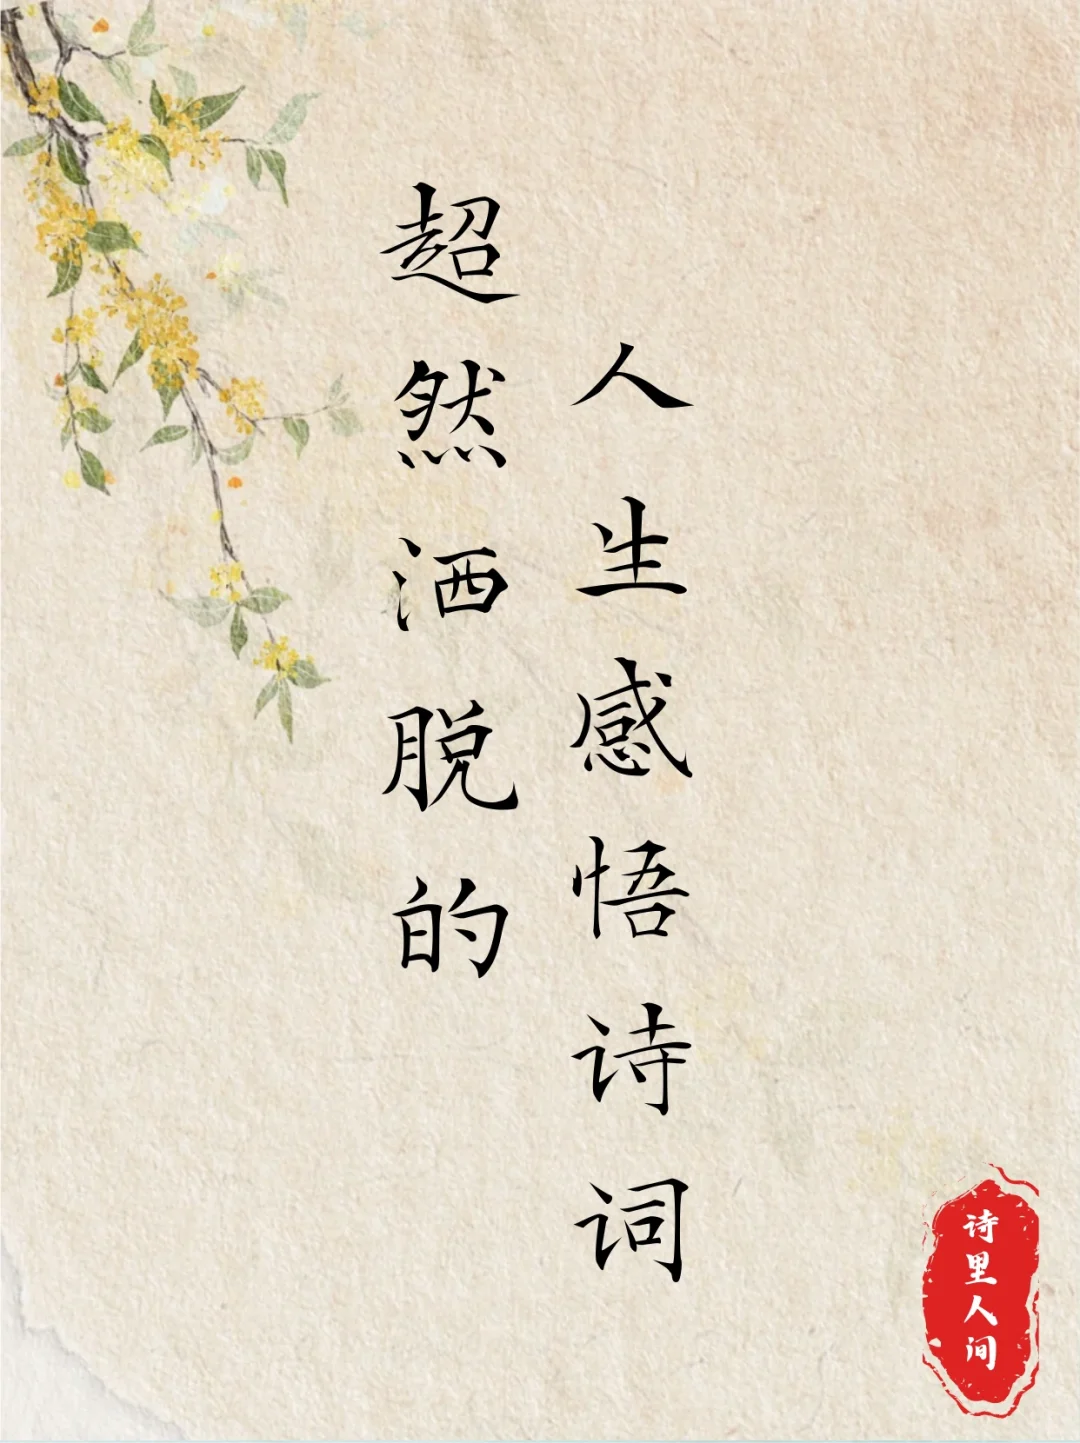 超然洒脱的
人生感悟诗词
诗里人间